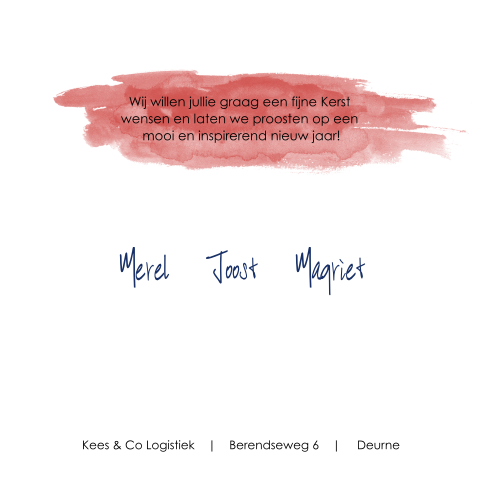 Wij willen jullie graag een fijne Kerst
wensen en laten we proosten op een
mooi en inspirerend nieuw jaar!
Merel Joost Magriet
Kees & Co Logistiek | Berendseweg 6 | Deurne